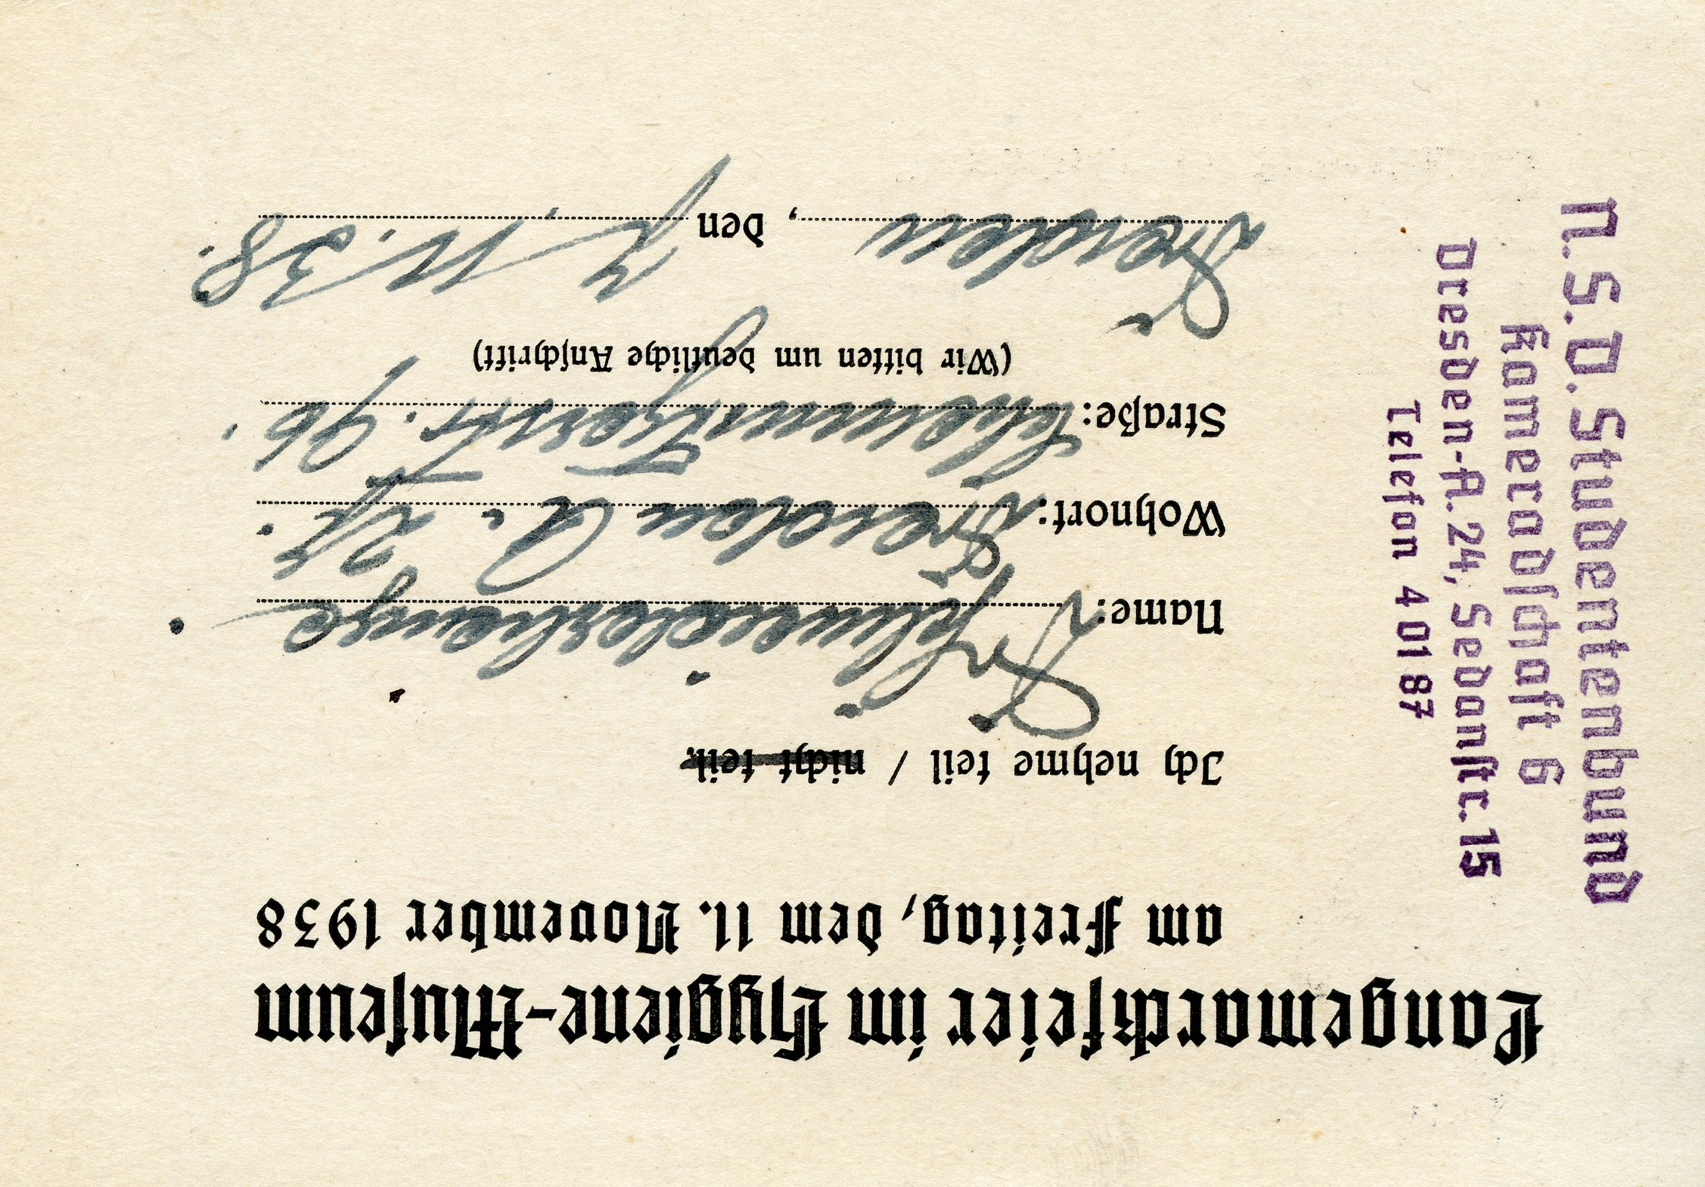 Langemarckfeier im Hygiene-Museum
am Freitag, dem 11. November 1938
Ich nehme teil / nicht teil.
Name:
Wohnort: Dresden A. 24.
Straße: Chemnitzerstr. 96.
(Wir bitten um deutliche Anschrift)
Dresden, den 7. 11. 38.
N.S.D. Studentenbund
Kameradschaft 6
Dresden-A. 24, Sedanstr. 15
Telefon 4 01 87